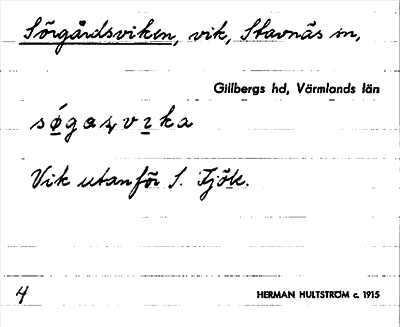 Sörgårdsviken, vik, Stavnäs sn,
Gillbergs hd, Värmlands län
Vik utanför S. Fjöle.
4
HERMAN HULTSTRÖM c. 1915